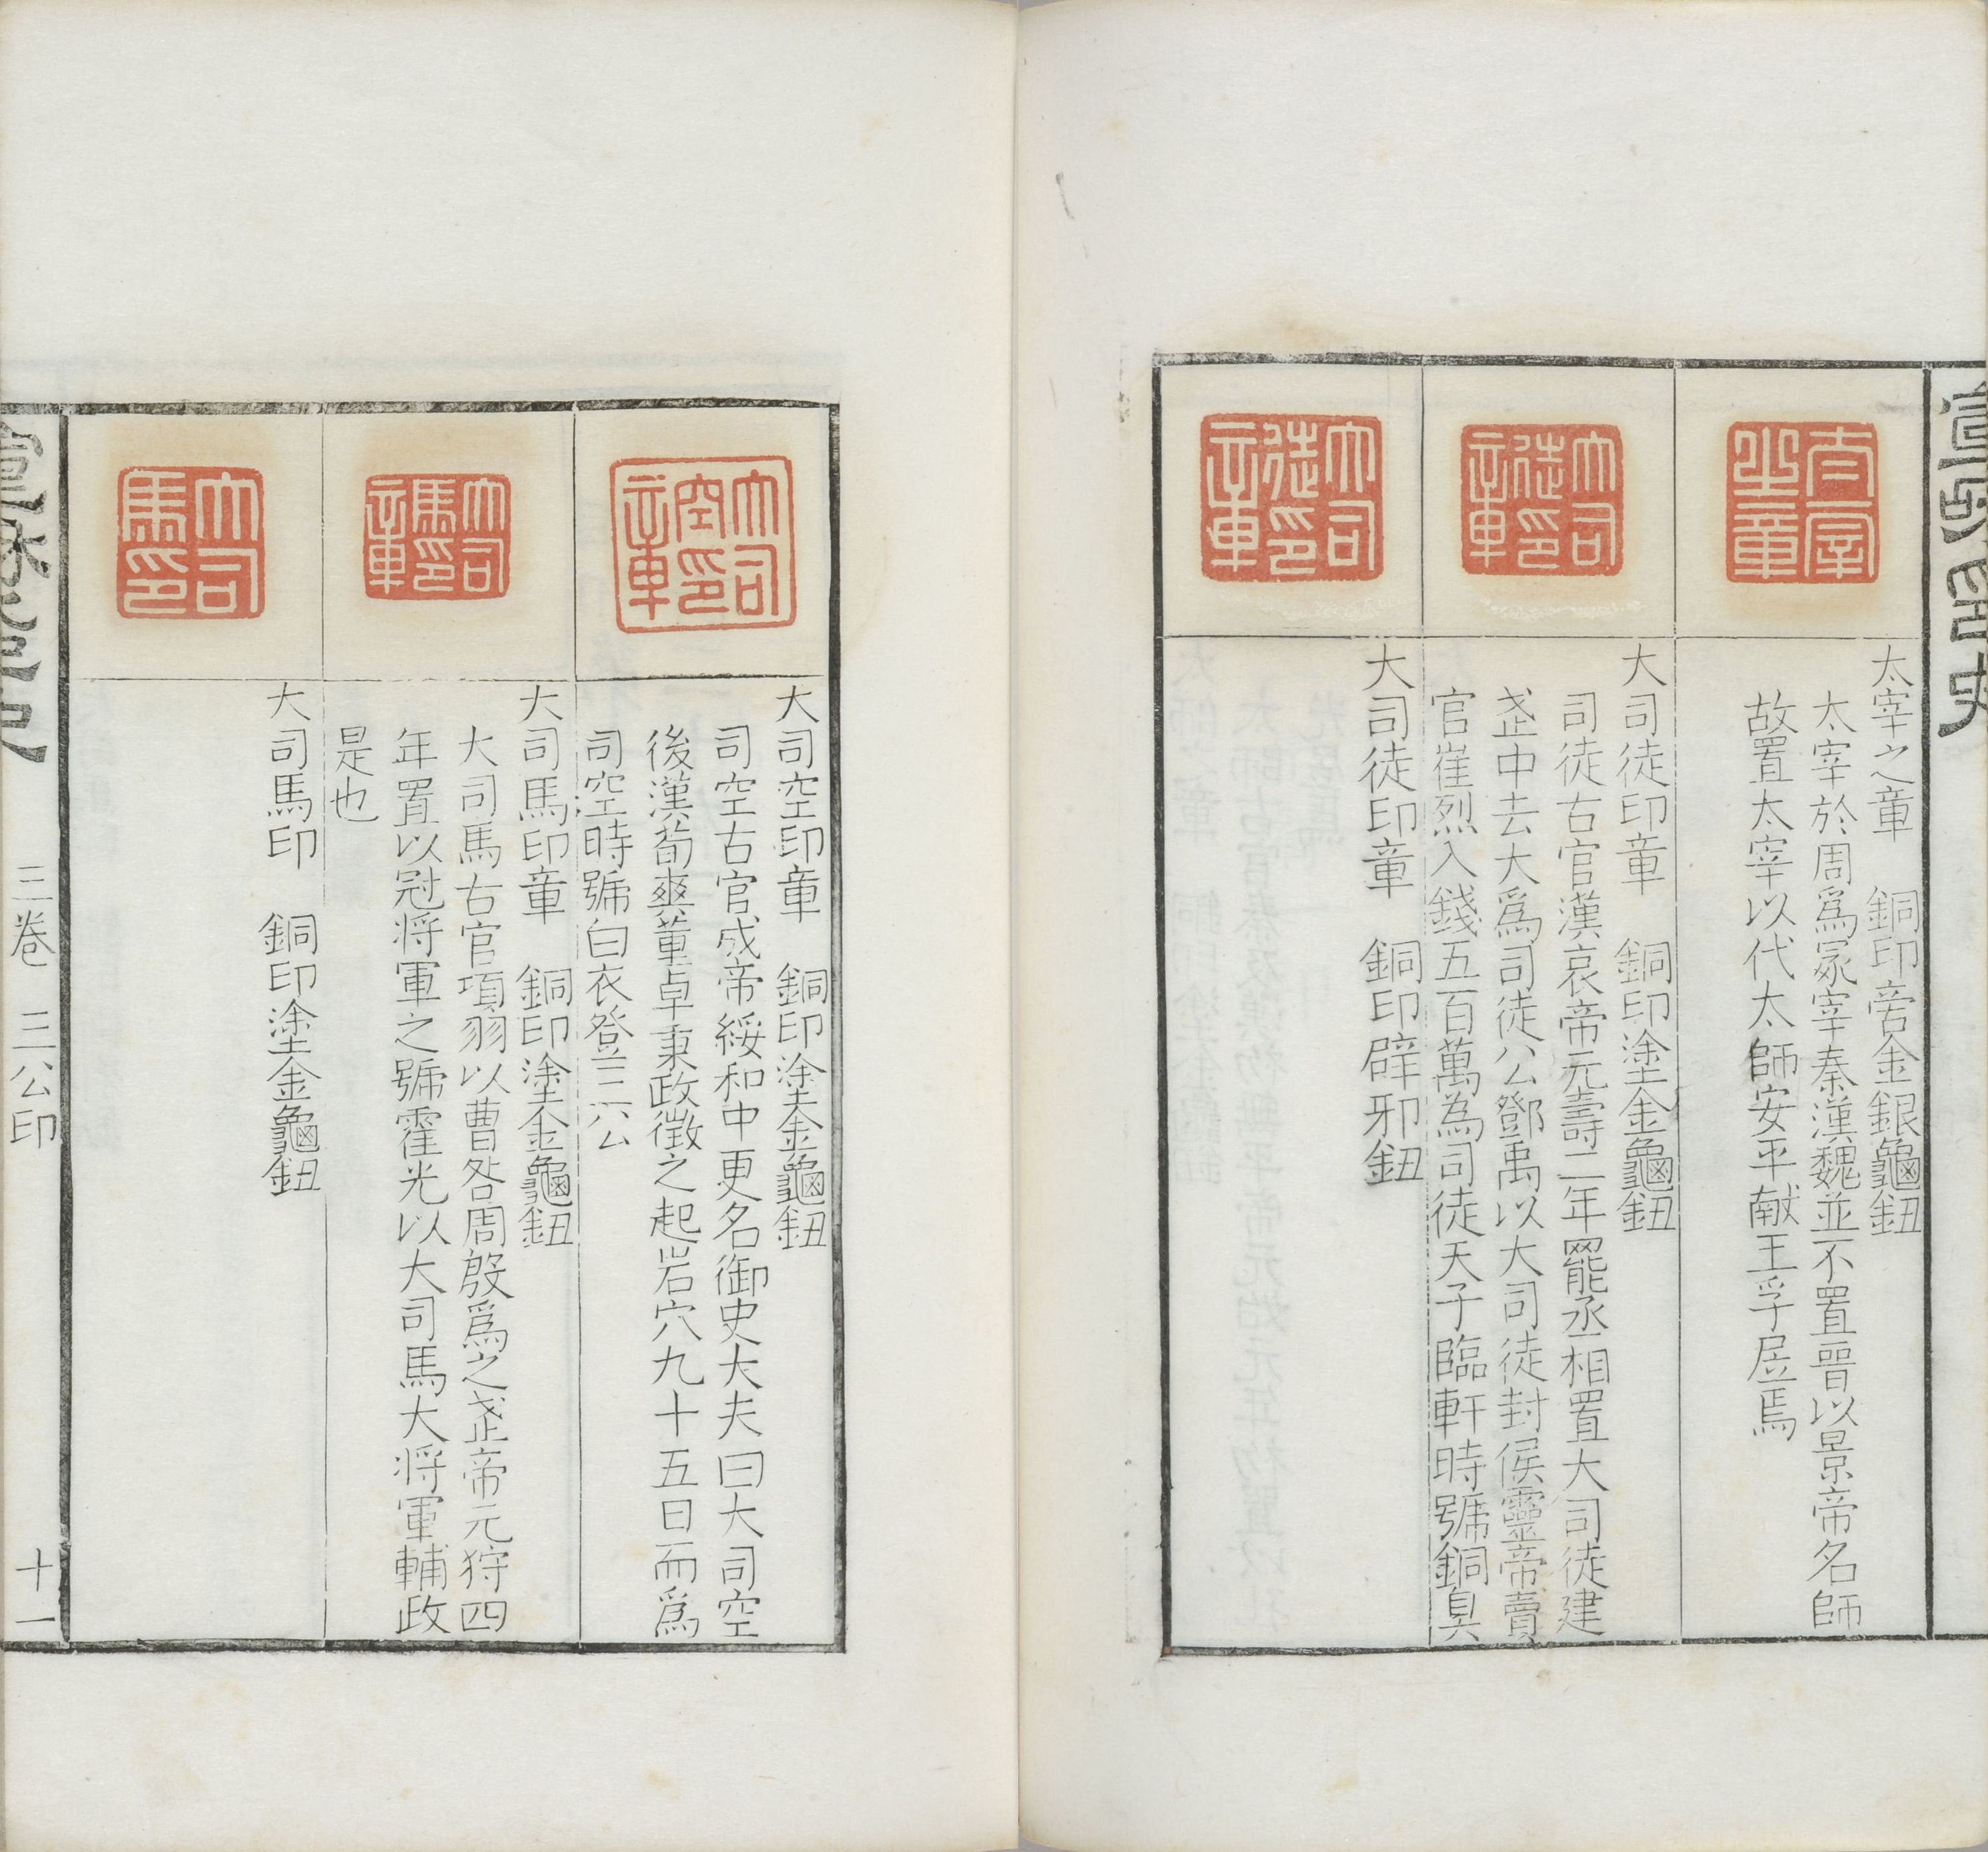 太宰之章
太宰之章　銅印旁金銀龜鈕
太宰於周爲冡宰秦漢魏並不置晉以景帝名師
故置太宰以代太師安平献王孚居焉
大司徒印章
大司徒印章　銅印塗金龜鈕
司徒古官漢哀帝元壽二年罷丞相置大司徒建
武中去大爲司徒公鄧禹以大司徒封侯靈帝賣
官崔烈入錢五百萬為司徒天子臨軒時號銅臭
大司徒印章
大司徒印章　銅印辟邪鈕
大司空印章
大司空印章　銅印塗金龜鈕
司空古官成帝綏和中更名御史大夫曰大司空
後漢荀爽董卓秉政徴之起岩穴九十五日而爲
司空時號白衣登三公
大司馬印章
大司馬印章　銅印塗金龜鈕
大司馬古官項羽以曹咎周殷爲之武帝元狩四
年置以冠将軍之號霍光以大司馬大将軍輔政
是也
大司馬印
大司馬印　銅印塗金龜鈕
三卷　三公印　十一